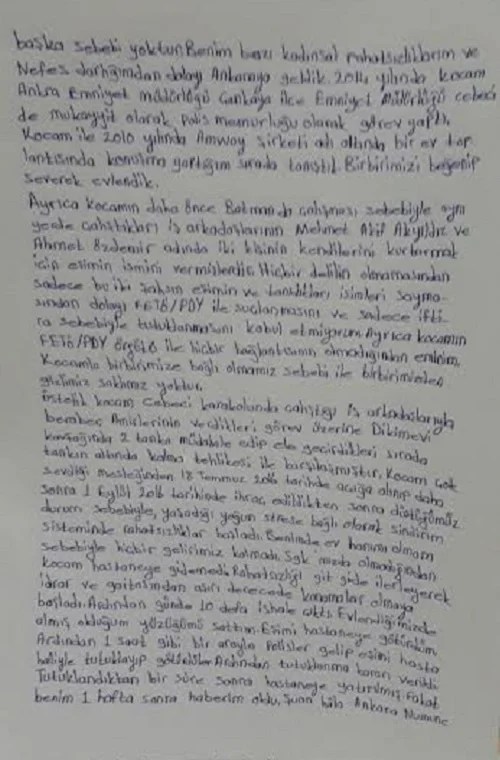 başka sebebi yoktur. Benim bazı kadınsal rahatsızlıklarım ve
Nefes darlığımdan dolayı Ankaraya geldik. 2014 yılında kocam
Ankra Emniyet müdürlüğü Çankaya ilçe Emniyet Müdürlüğü cebeci
de mukayyit olarak, polis memurluğu olarak görev yaptı.
Kocam ile 2010 yılında Amway şirketi adı altında bir ev top
lantısında konuşma yaptığım sırada tanıştık. Birbirimizi beğenip
severek evlendik.
Ayrıca kocamın daha önce Batmanda çalışması sebebiyle aynı
yerde çalıştıkları iş arkadaşlarının Mehmet Akif Akyıldız ve
Ahmet Özdemir adında iki kişinin kendilerini kurtarmak
için eşimin ismini vermişlerdir. Hiçbir delilin olmamasından
sadece bu iki şahsın eşimin ve tanıdıkları isimleri sayma-
sından dolayı FETÖ/PDY ile suçlanmasını ve sadece ifti-
ra sebebiyle tutuklanmasını kabul etmiyorum. Ayrıca kocamın
FETÖ/PDY örgütü ile hiçbir bağlantısının olmadığından eminim.
Kocamla birbirimize bağlı olmamız sebebi ile birbirimizden
gizlimiz saklımız yoktur.
Üstelik kocam Cebeci karakolunda çalıştığı iş arkadaşlarıyla
beraber, Amirlerinin verdikleri görev üzerine Dikimevi
kavşağında 2 tanka müdahale edip ele geçirdikleri sırada
tankın altında kalma tehlikesi ile karşılaşmıştır. Kocam çok
sevdiği mesleğinden 18 Temmuz 2016 tarihde açığa alınıp daha
sonra 1 Eylül 2016 tarihinde ihraç edildikten sonra düştüğümüz
durum sebebiyle, yaşadığı yoğun strese bağlı olarak sindirim
sisteminde rahatsızlıklar başladı. Benimde ev hanımı olmam
sebebiyle hiçbir gelirimiz kalmadı. Sgk mızda olmadığından
kocam hastaneye gidemedi. Rahatsızlığı git gide ilerleyerek
idrar ve gaitasından aşırı derecede kanamalar olmaya
başladı. Ardından günde 10 defa ishale çıktı. Evlendiğimizde
almış olduğum yüzüğümü sattım. Eşimi hastaneye götürdüm.
Ardından 1 saat gibi bir arayla polisler gelip eşimi hasta
haliyle tutuklayıp götürdüler. Ardından tutuklanma kararı verildi.
Tutuklandıktan bir süre sonra hastaneye yatırılmış. Fakat
benim 1 hafta sonra haberim oldu. Şuan hala Ankara Numune